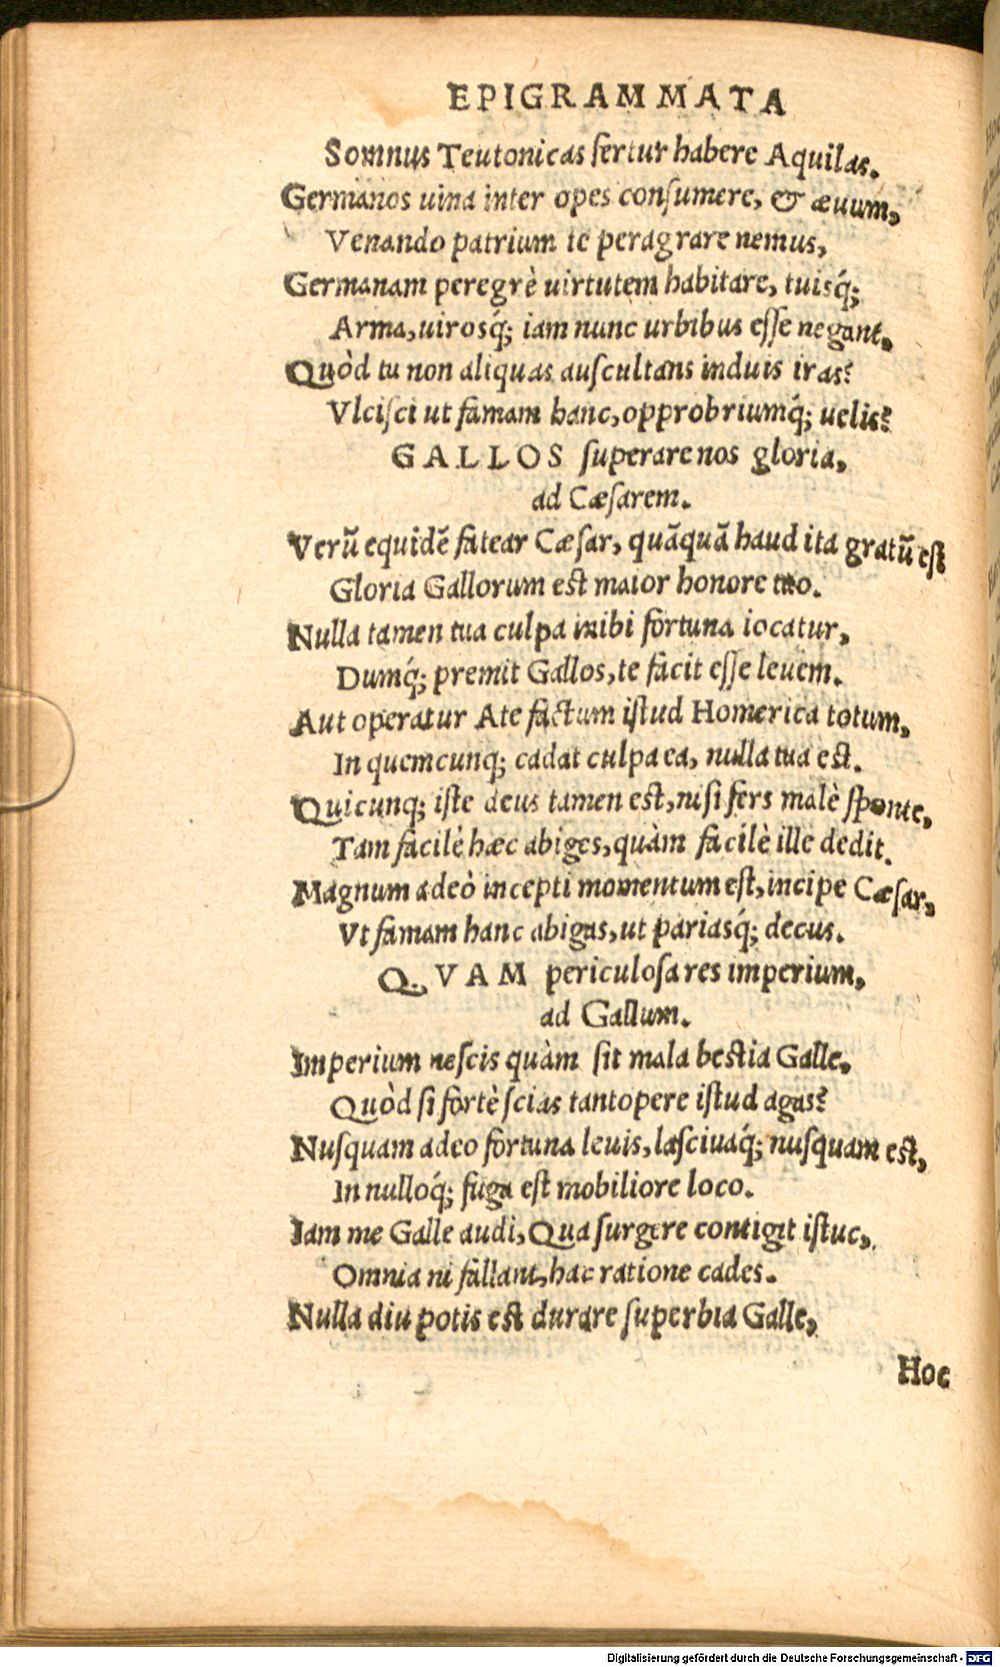 EPIGRAMMATA
Somnus Teutonicas fertur habere Aquilas.
Germanos uina inter opes consumere, & æuum,
Venando patrium te peragrare nemus,
Germanam peregrè uirtutem habitare, tuisq́;
Arma, uirosq́; iam nunc urbibus esse negant,
Quòd tu non aliquas auscultans induis iras?
Vlcisci ut famam hanc, opprobriumq́; uelis?
GALLOS superare nos gloria,
ad Cæsarem.
Verū equidē fatear Cæsar, quāquā haud ita gratū est
Gloria Gallorum est maior honore tuo.
Nulla tamen tua culpa inibi fortuna iocatur,
Dumq́; premit Gallos, te facit esse leuem.
Aut operatur Ate factum istud Homerica totum,
In quemcunq; cadat culpa ea, nulla tua est.
Quicunq; iste deus tamen est, ni si fers malè sponte,
Tam facilè hæc abiges, quàm facilè ille dedit.
Magnum adeò incepti momentum est, incipe Cæsar,
Vt famam hanc abigas, ut pariasq́; decus.
QVAM periculosa res imperium,
ad Gallum.
Imperium nescis quàm sit mala bestia Galle,
Quòd si fortè scias tantopere istud agas?
Nusquam adeo fortuna leuis, lasciuaq́; nusquam est,
In nulloq́; fuga est mobiliore loco.
Iam me Galle audi, Qua surgere contigit istuc,
Omnia ni fallant, hac ratione cades.
Nulla diu potis est durare superbia Galle,
Hoc
Digitalisierung gefördert durch die Deutsche Forschungsgemeinschaft - DFG